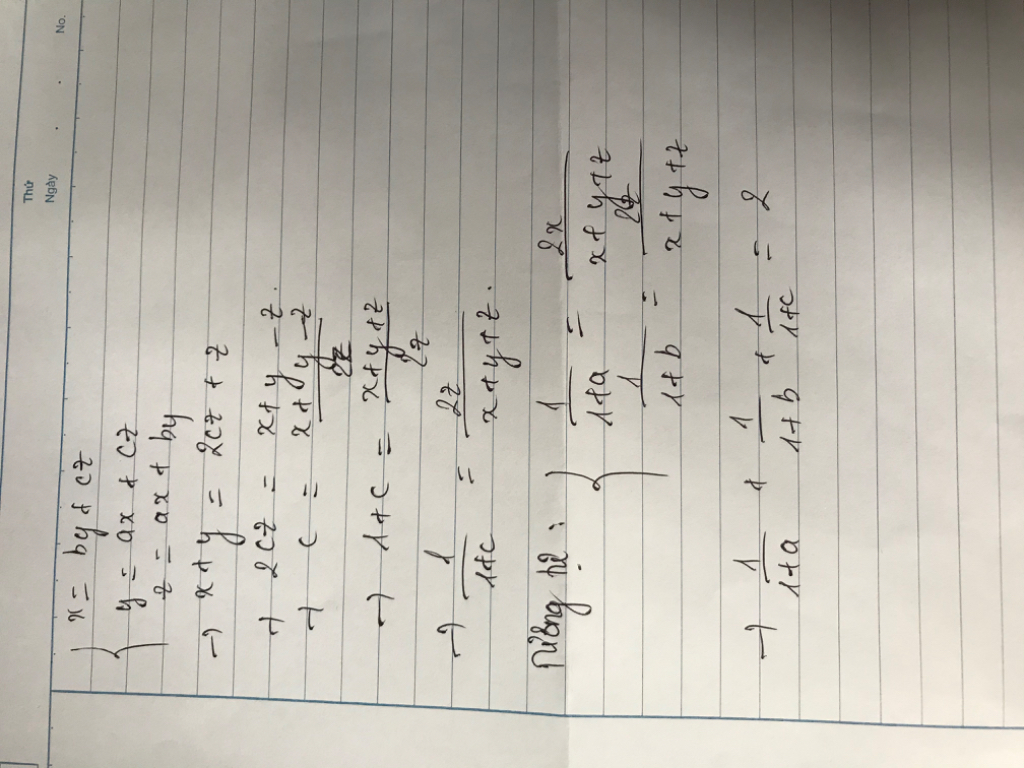 Thứ
Ngày . . No.
{ x = by + cz
y = ax + cz
z = ax + by
→ x + y = 2cz + z
→ 2cz = x + y - z.
→ c = \frac{x+y-z}{2z}
→ 1+c = \frac{x+y+z}{2z}
→ \frac{1}{1+c} = \frac{2z}{x+y+z}.
Tương tự: { \frac{1}{1+a} = \frac{2x}{x+y+z}
\frac{1}{1+b} = \frac{}{x+y+z}
→ \frac{1}{1+a} + \frac{1}{1+b} + \frac{1}{1+c} = 2